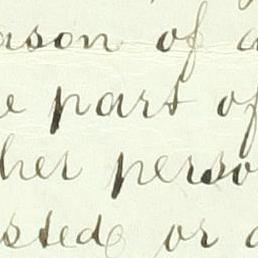 ason of a
e part of
her perso
sted or a